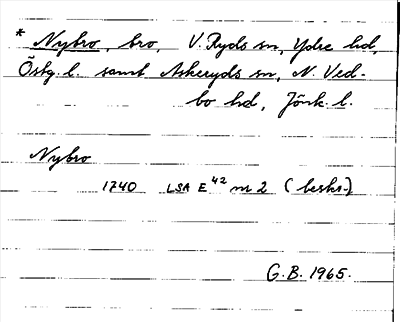 * Nybro, bro, V. Ryds sn, Ydre hd,
Östg. l. samt Askeryds sn, N. Ved-
bo hd, Jönk. l.
Nybro
1740 LSA E 42 nr 2 (beskr.)
G.B. 1965.